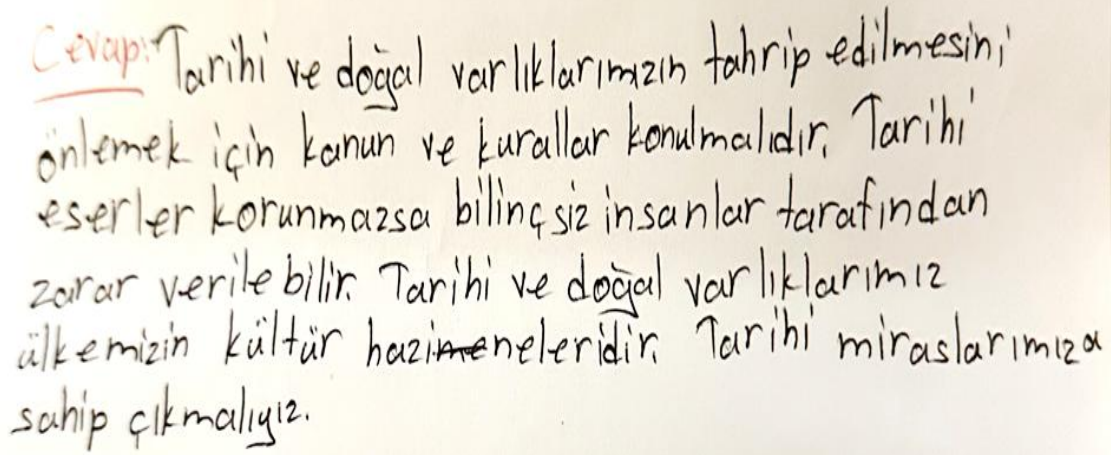 Cevap: Tarihi ve doğal varlıklarımızın tahrip edilmesini
önlemek için kanun ve kurallar konulmalıdır. Tarihi
eserler korunmazsa bilinçsiz insanlar tarafından
zarar verilebilir. Tarihi ve doğal varlıklarımız
ülkemizin kültür hazineleridir. Tarihi miraslarımıza
sahip çıkmalıyız.